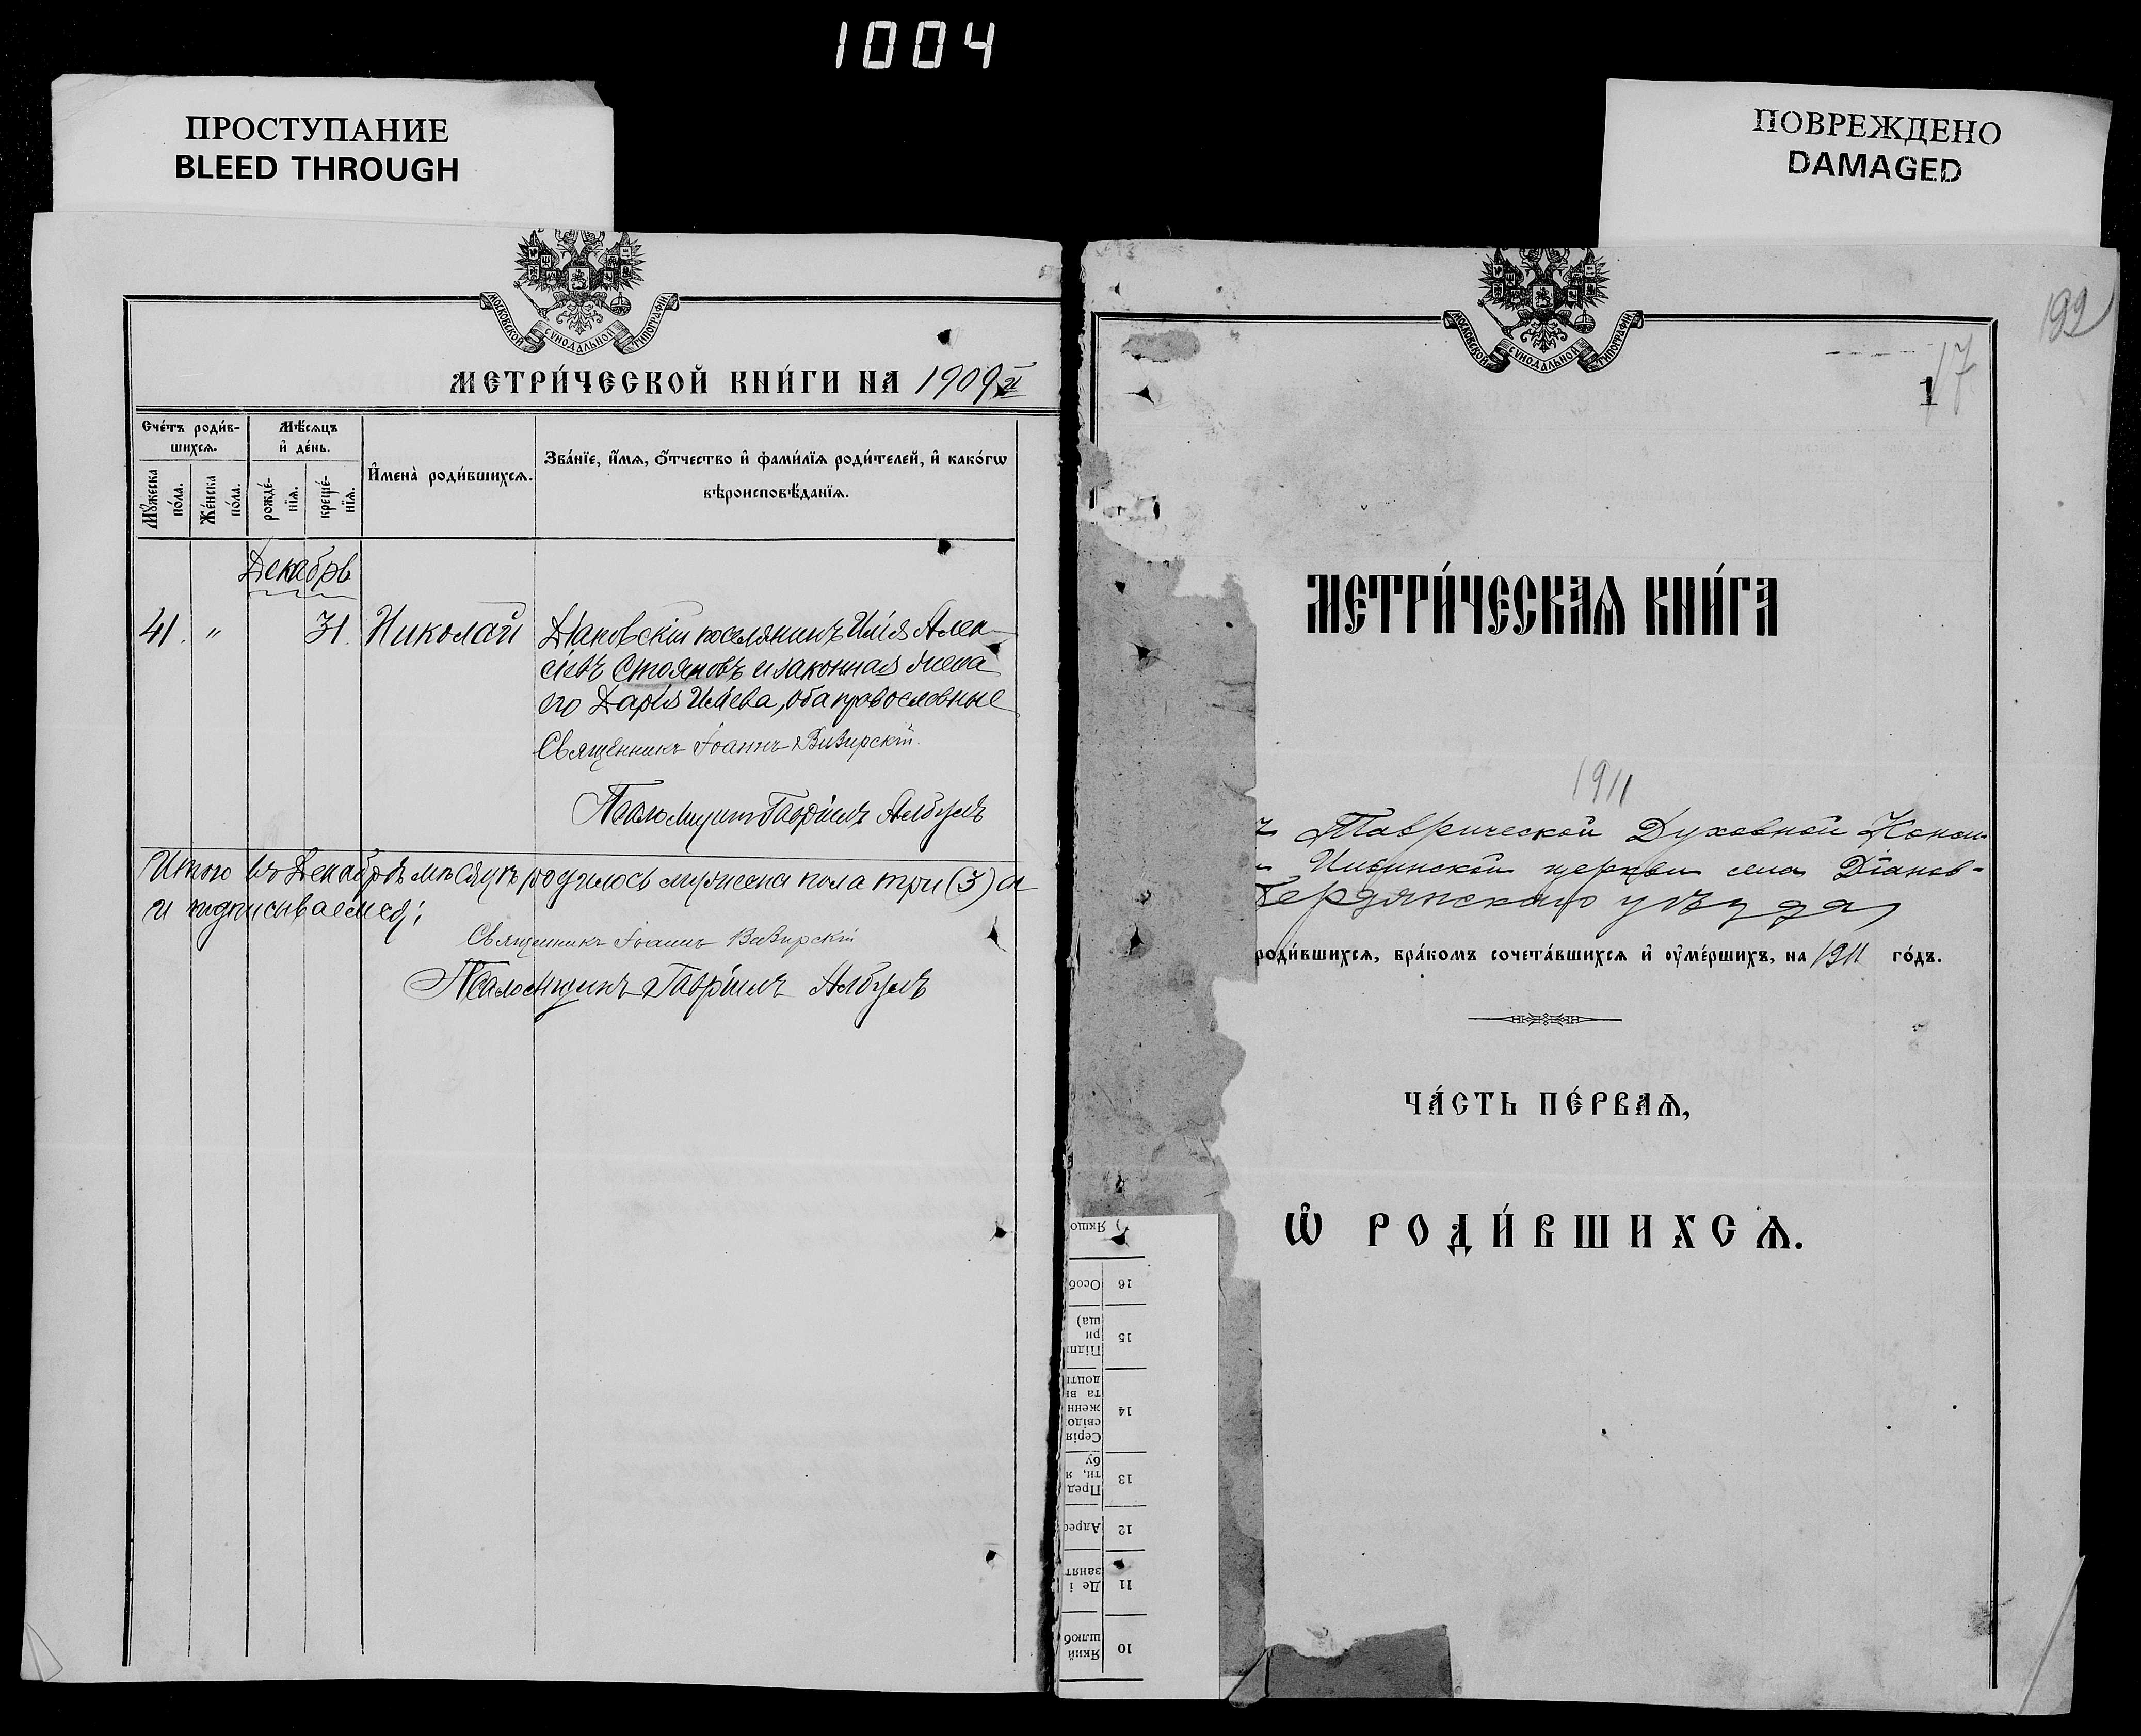 1004
ПРОСТУПАНИЕ
BLEED THROUGH
МОСКОВСКОЙ СѴНОДАЛЬНОЙ ТИПОГРАФІИ
МЕТРИ́ЧЕСКОЙ КНИ́ГИ НА 1909й
Сче́тъ роди́в-
шихсѧ.
Мꙋ́жеска
по́ла.
Же́нска
по́ла.
Мѣ́сѧцъ
и҆ де́нь.
рожде́-
нїѧ.
креще́-
нїѧ.
И҆мена̀ роди́вшихсѧ.
Зва́нїе, и҆́мѧ, ѻ҆́тчество и҆ фами́лїѧ роди́телей, и҆ како́гѡ
вѣроисповѣ́данїѧ.
Декабрь
41. " 31. Николай Діановскій поселянинъ Илія Алек-
сіевъ Стояновъ и законная жена
его Дарія Иліева, оба православные
Священникъ Іоаннъ
Псаломщикъ Гавріилъ Албулъ
Итого въ Декабрѣ мѣсяцѣ родилось мужеска пола три (3) а
и подписываемся;
Священникъ Іоаннъ
Псаломщикъ Гавріилъ Албулъ
ПОВРЕЖДЕНО
DAMAGED
192
МОСКОВСКОЙ СѴНОДАЛЬНОЙ ТИПОГРАФІИ
17
1
МЕТРИ́ЧЕСКАѦ КНИ́ГА
1911
ъ Таврической Духовной Конси-
Ильинской церкви села Діанов-
Бердянского уѣзда,
роди́вшихсѧ, бра́комъ сочета́вшихсѧ и҆ ᲂу҆ме́ршихъ, на 1911 го́дъ.
ЧА́СТЬ ПЕ́РВАѦ,
Ѡ҆ РОДИ́ВШИХСѦ.
Якщо
16 Особ
15 Підпи
ри
ша)
14 Серія
свідо
женн
та ви
дошті
13 Пред
ти, я
бу
12 Адрес
11 Де і
занят
10 Який
шлюб